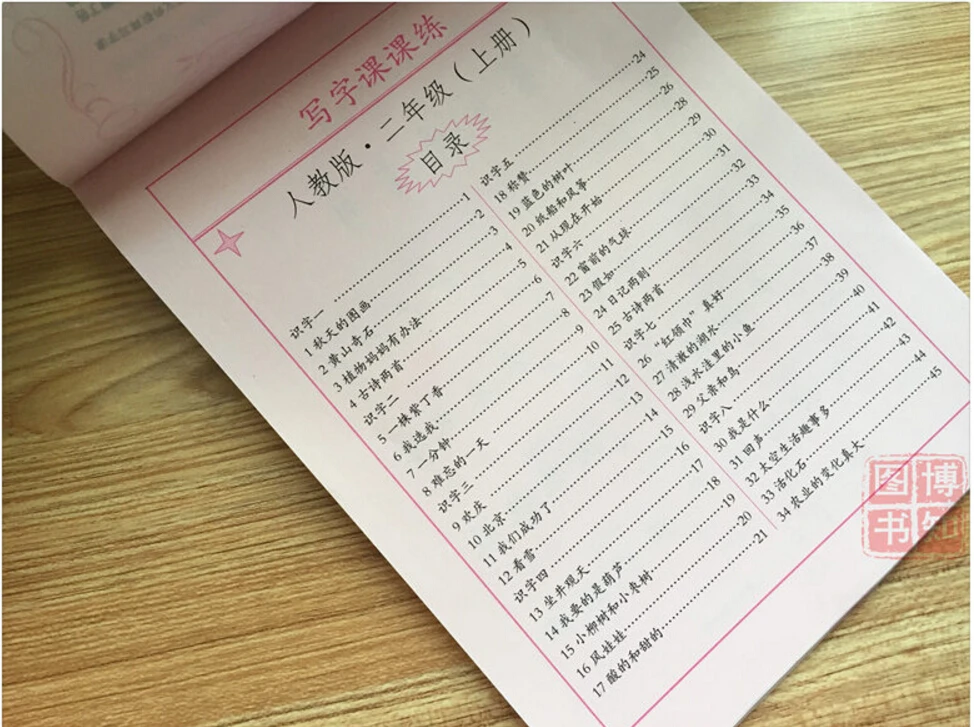 写字课课练
人教版·二年级（上册）
目录
识字一 1
1 秋天的图画 2
2 黄山奇石 3
3 植物妈妈有办法 4
4 古诗两首 5
识字二 6
5 一株紫丁香 7
6 我选我 8
7 一分钟 9
8 难忘的一天 10
识字三 11
9 欢庆 12
10 北京 13
11 我们成功了 14
12 看雪 15
识字四 16
13 坐井观天 17
14 我要的是葫芦 18
15 小柳树和小枣树 19
16 风娃娃 20
17 酸的和甜的 21
识字五 24
18 称赞 25
19 蓝色的树叶 26
20 纸船和风筝 28
21 从现在开始 29
识字六 30
22 窗前的气球 31
23 假如 32
24 日记两则 33
25 古诗两首 34
识字七 35
26 “红领巾”真好 36
27 清澈的湖水 37
28 浅水洼里的小鱼 38
29 父亲和鸟 39
识字八 40
30 我是什么 41
31 回声 42
32 太空生活趣事多 43
33 活化石 44
34 农业的变化真大 45
博知
图书